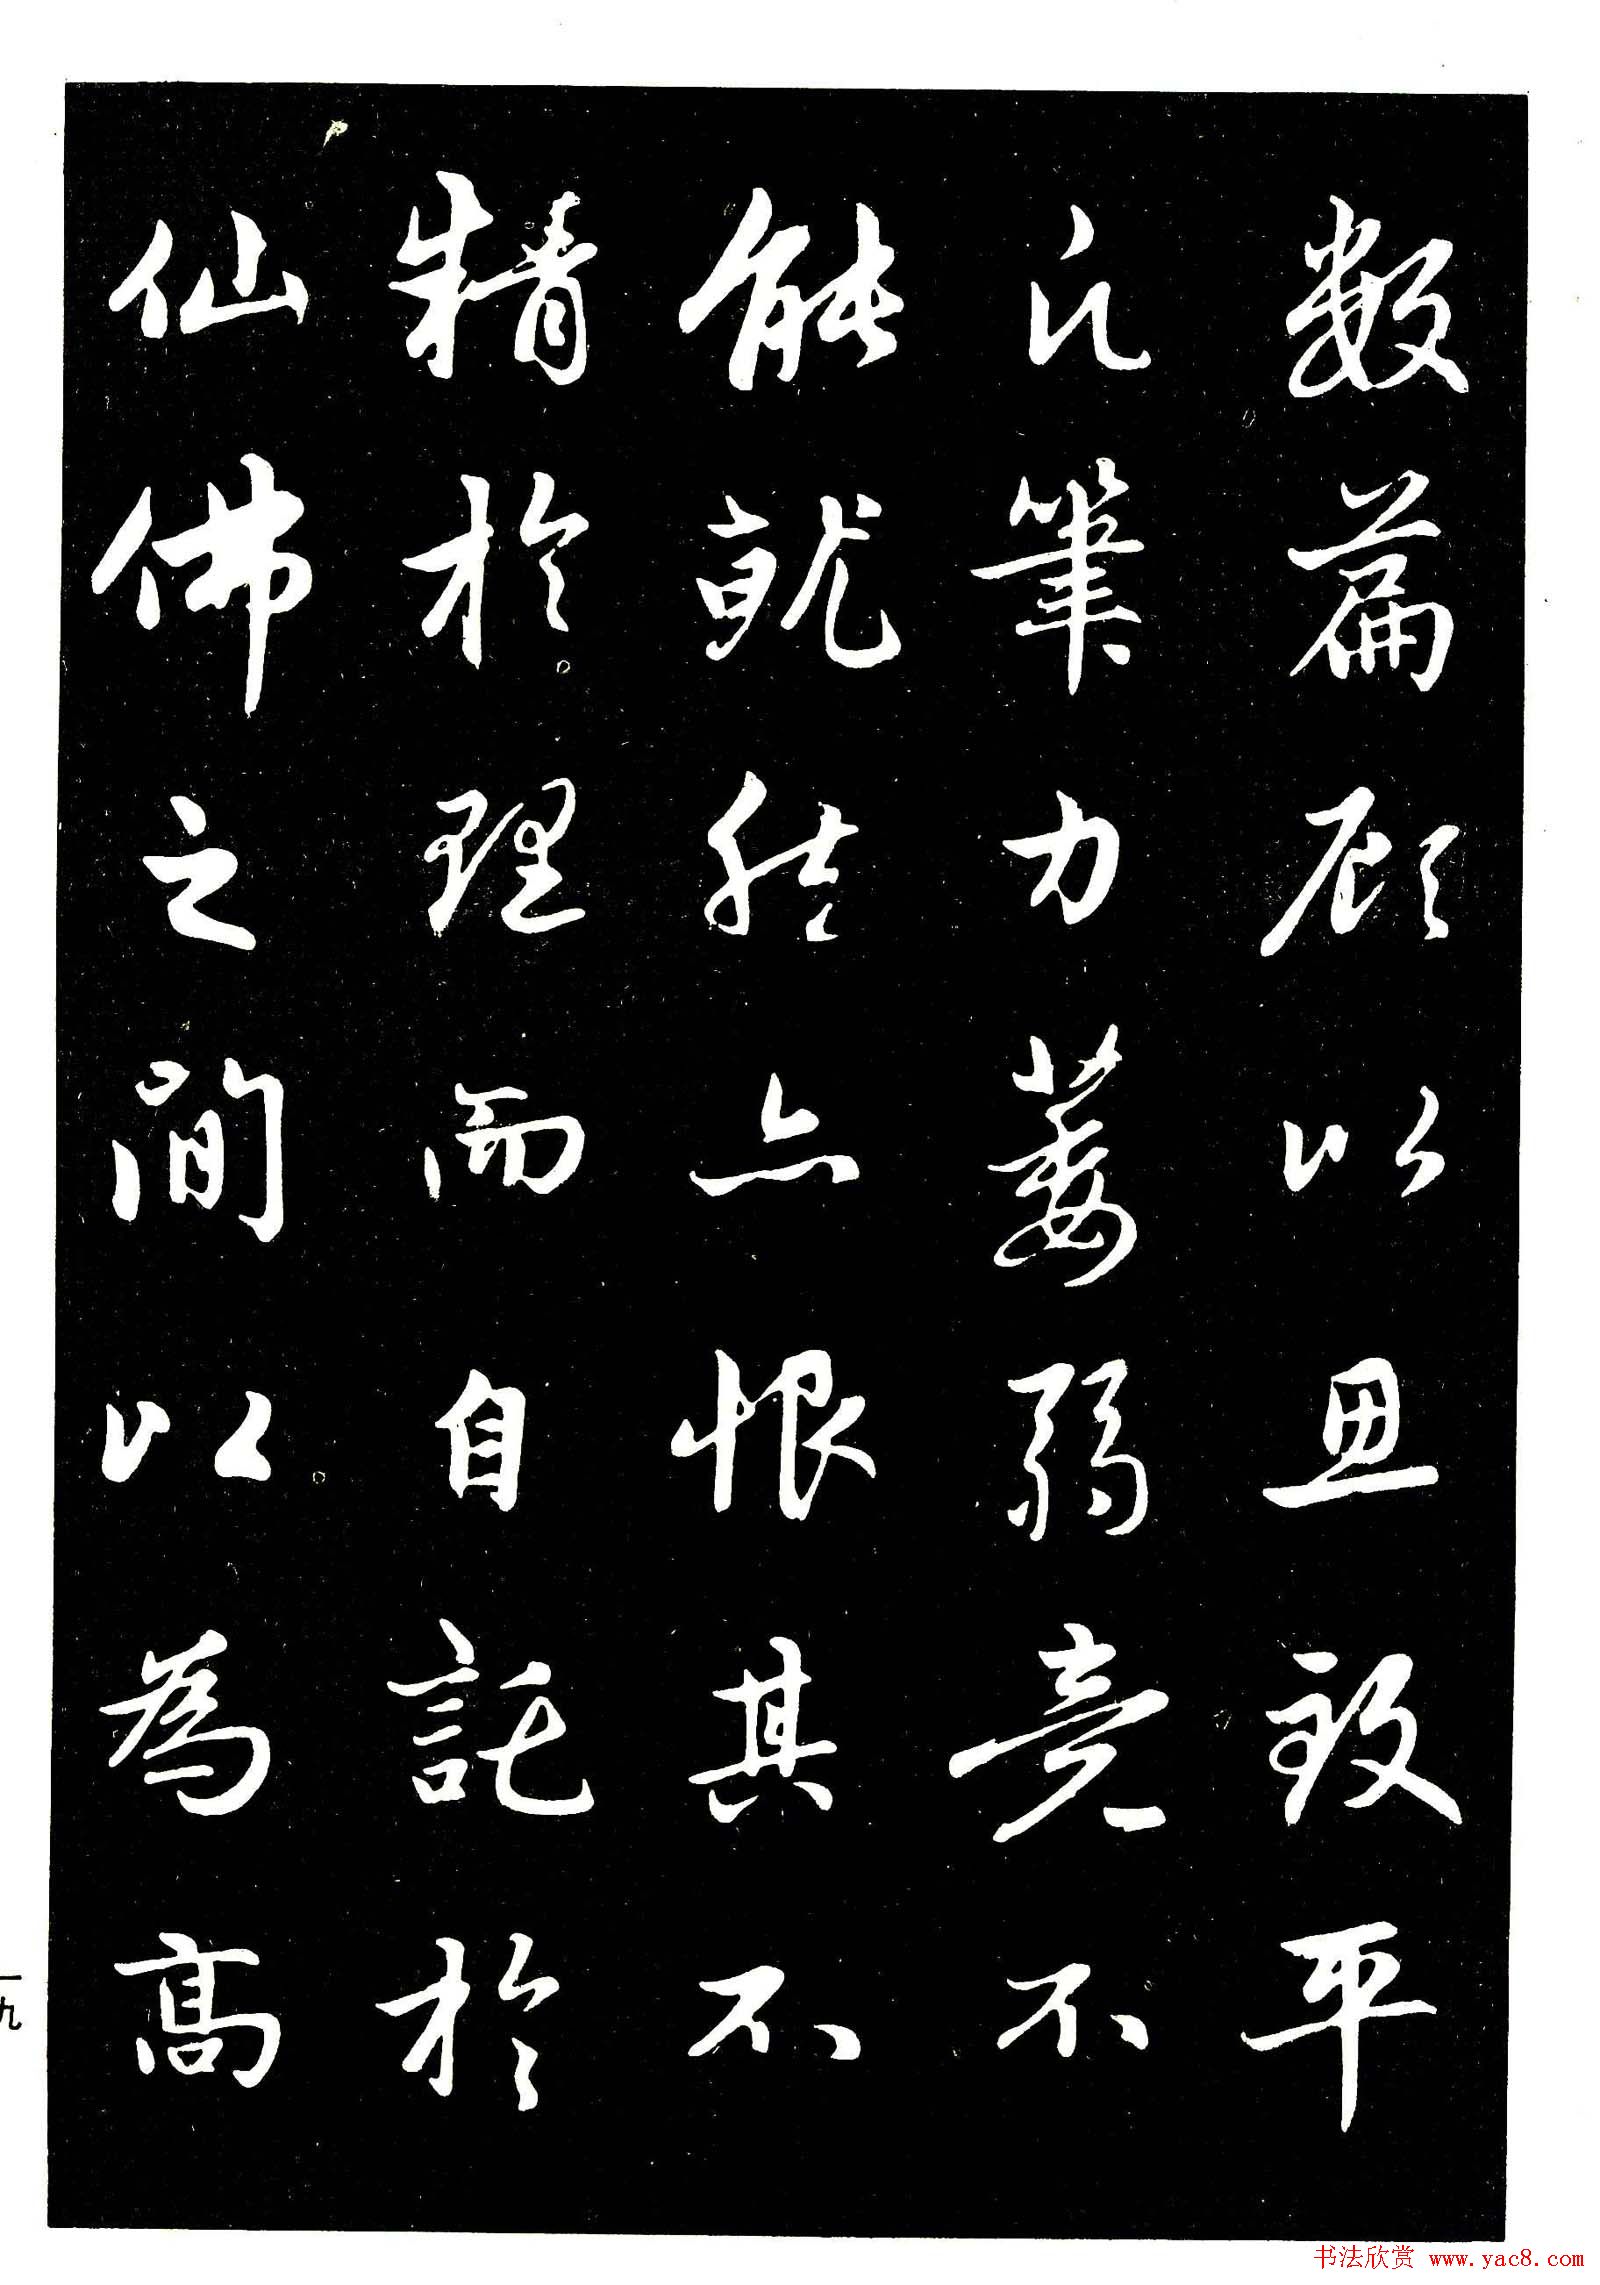 數篇顧以思致平
凡筆力萎弱竟不
能就然亦恨其不
精於理而自託於
仙佛之間以為高
一九
书法欣赏 www.yac8.com